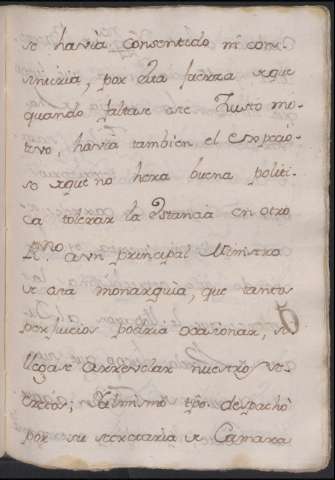 se havia consentido ni con-
sintiria, por esta fuerza y que
quando faltase este Justo mo-
tivo, havia tambien el expreci-
so y que no hera buena politi-
ca tolerar la Estancia en otro
R.no a un principal Ministro
de esta monarquia, que tantos
perjuicios podria ocasionar, si
llegase a rrevelar nuestros se-
cretos; Al mismo tpo. despachò
por su secretaria de Camara